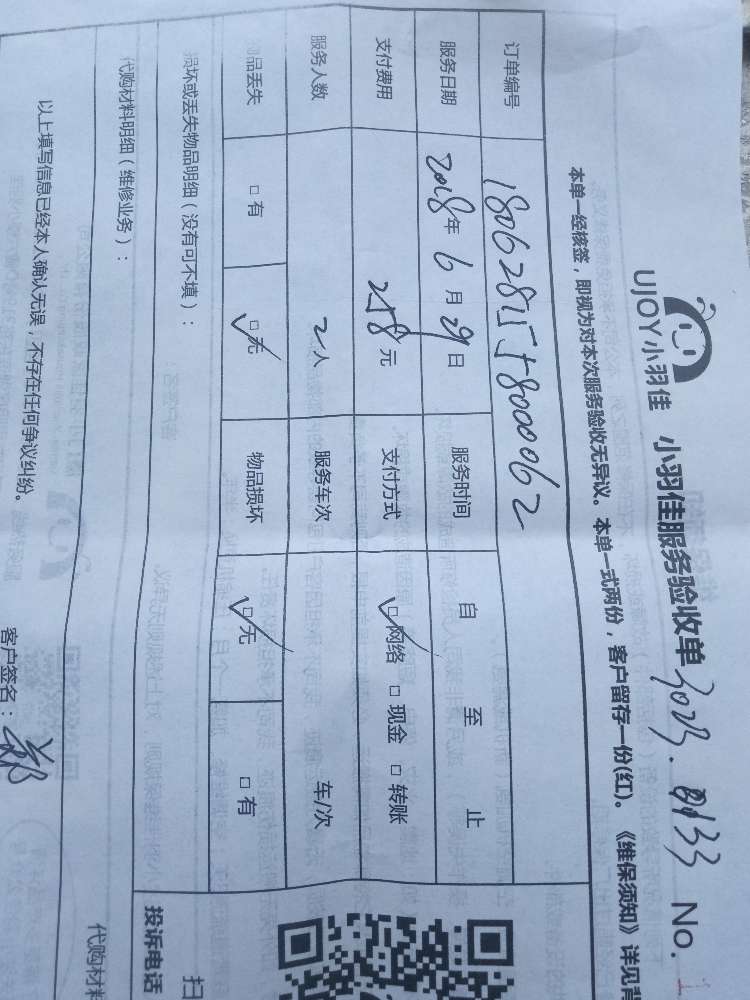 UJOY小羽佳 小羽佳服务验收单 3023.0133 No.
本单一经核签，即视为对本次服务验收无异议。本单一式两份，客户留存一份(红)。《维保须知》详见背
订单编号 1806281558000062
服务日期 2018年 6月 29日 服务时间 自 至 止
支付费用 258元 支付方式 ☑网络 □现金 □转账
服务人数 2人 服务车次 车/次
物品丢失 □有 ☑无 物品损坏 ☑无 □有
损坏或丢失物品明细（没有可不填）：
投诉电话
扫
代购材料明细（维修业务）：
代购材料
以上填写信息已经本人确认无误，不存在任何争议纠纷。
客户签名：郑